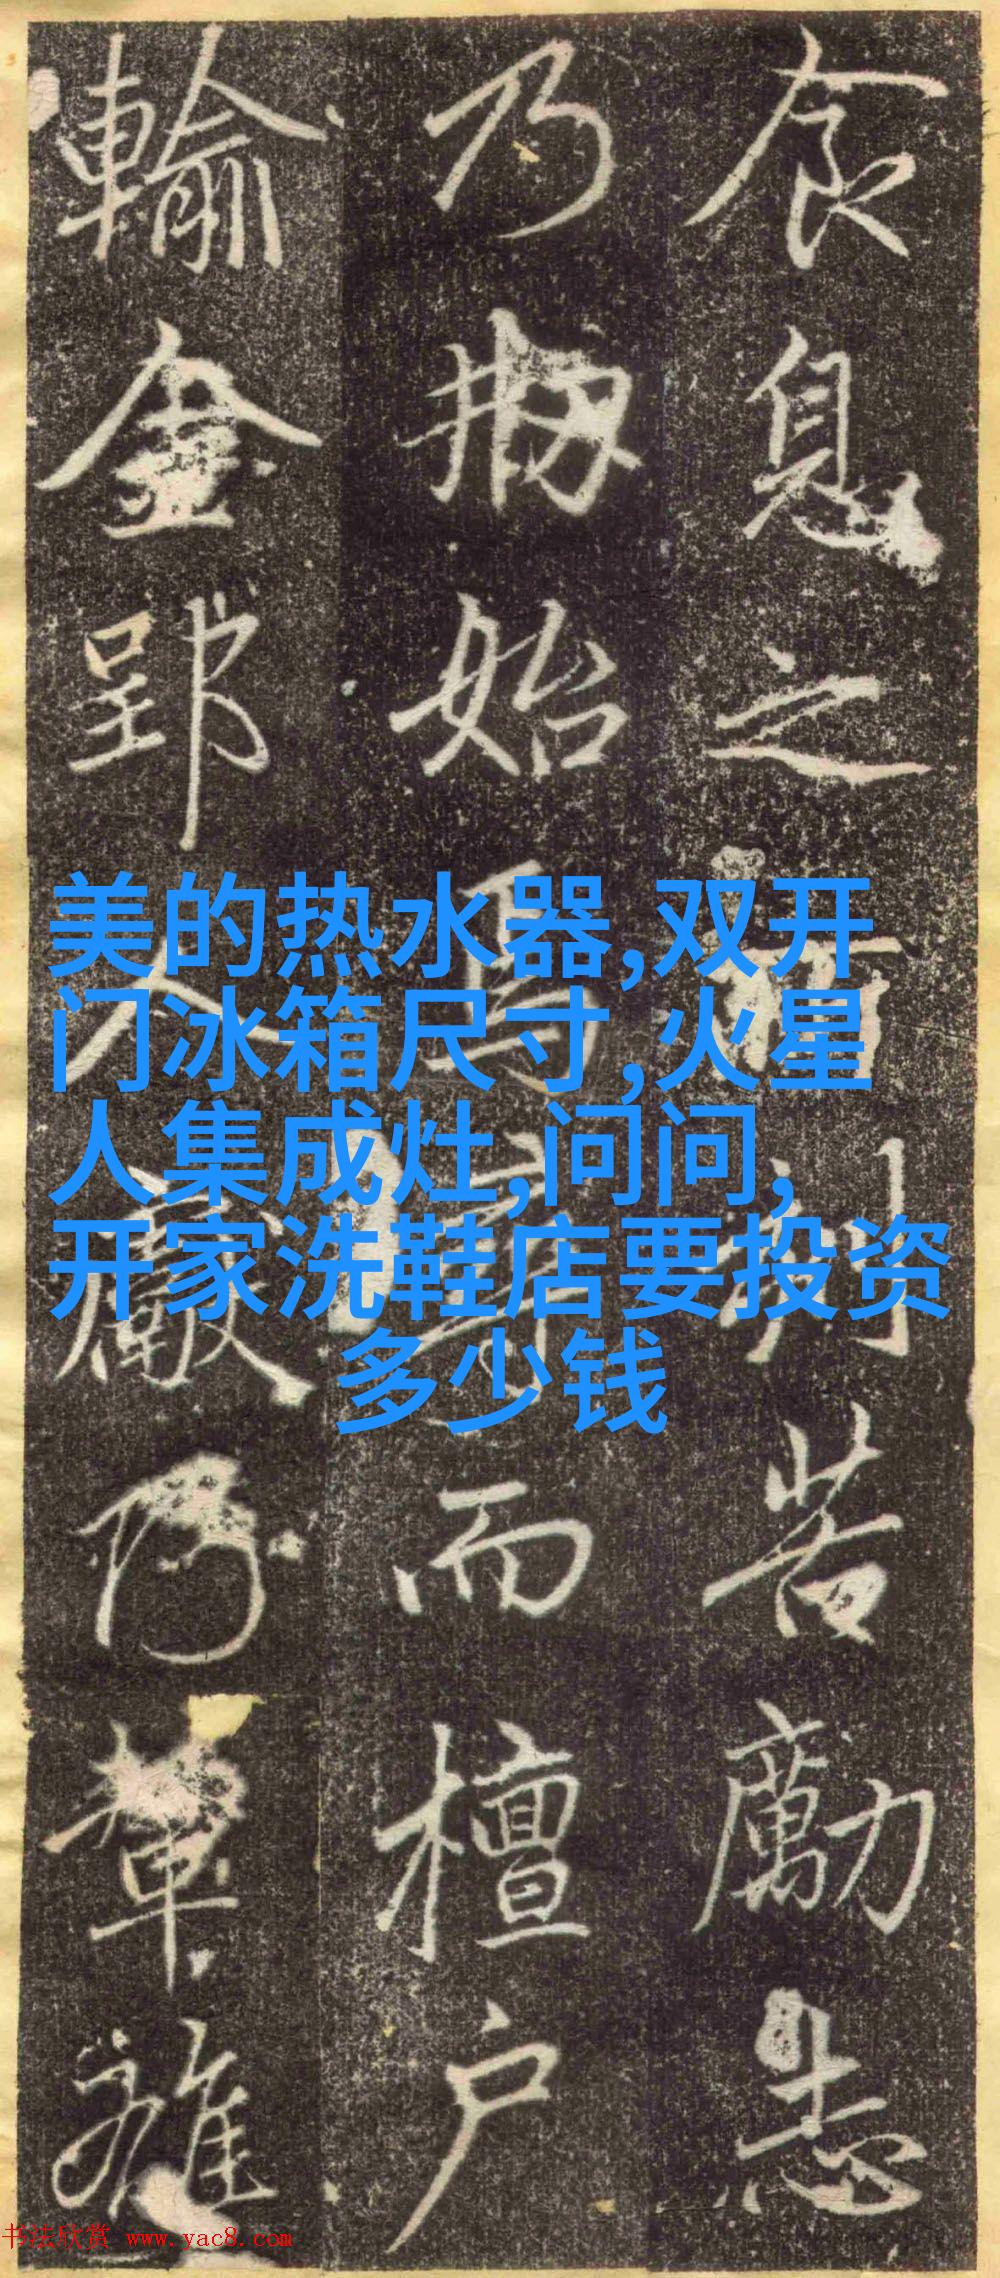 食息之苦勵志
乃始焉而檀户
輸金郢人輩雖
美的热水器,双开
门冰箱尺寸,火星
人集成灶,问问,
开家洗鞋店要投资
多少钱
书法欣赏 www.yac8.com